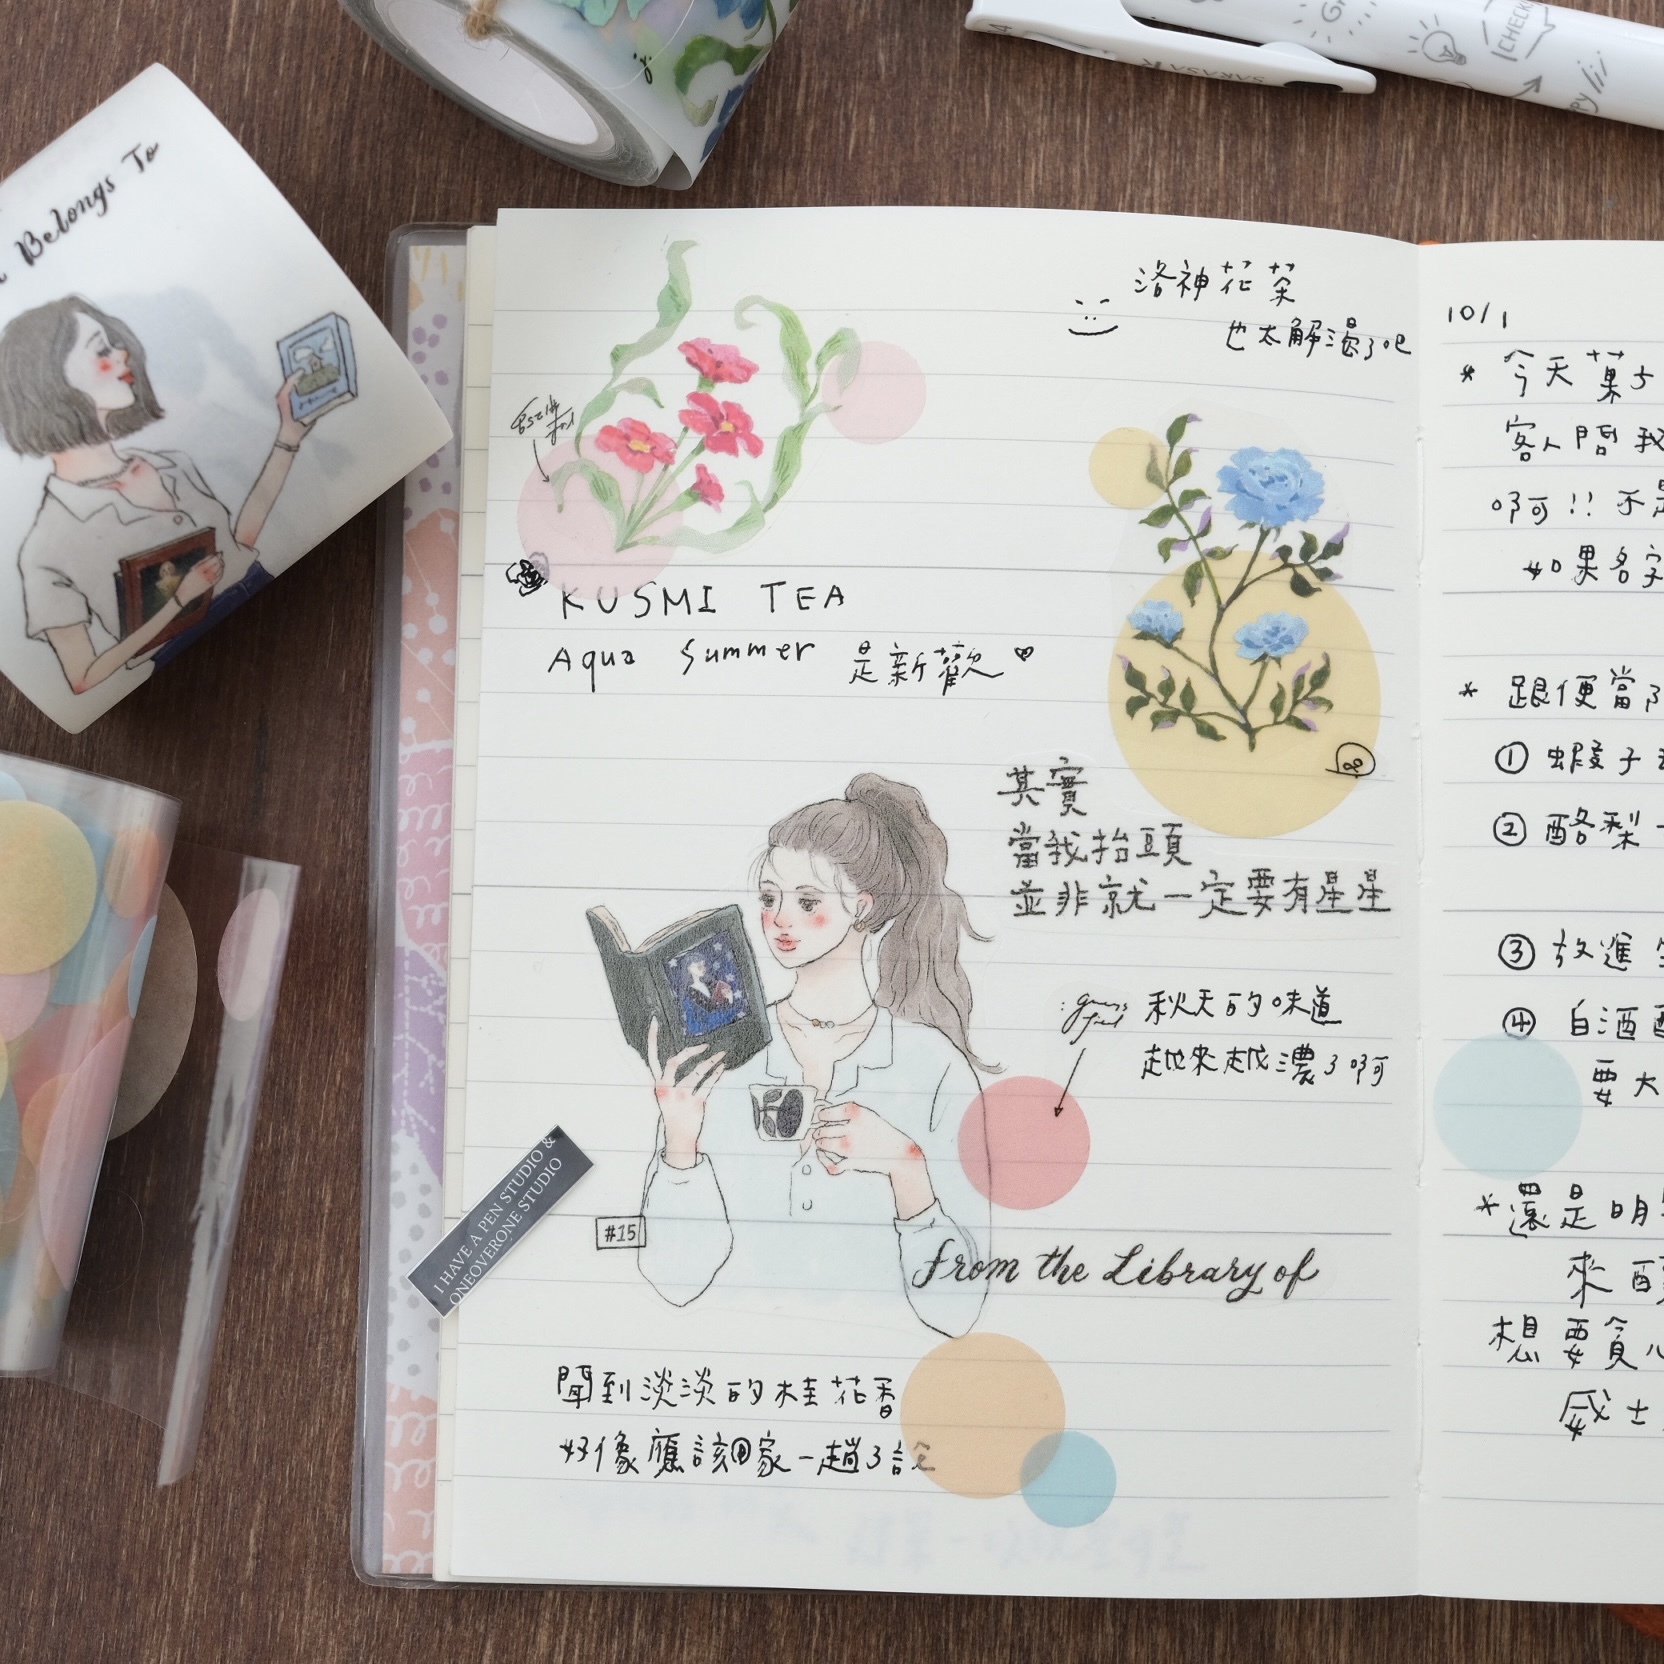 Belongs To
CHECK
洛神花茶
也太解渴了吧
KUSMI TEA
Aqua Summer 是新歡
其實
當我抬頭
並非就一定要有星星
秋天的味道
越來越濃了啊
I HAVE A PEN STUDIO &
ONEOVERONE STUDIO
#15
from the Library of
聞到淡淡的桂花香
好像應該回家一趟了說
10/1
* 今天菓子
客人問我
啊!! 不是
如果名字
* 跟便當
① 蝦子
② 酪梨
③ 放進
④ 白酒
要大
* 還是明
來
想要貪心
威士